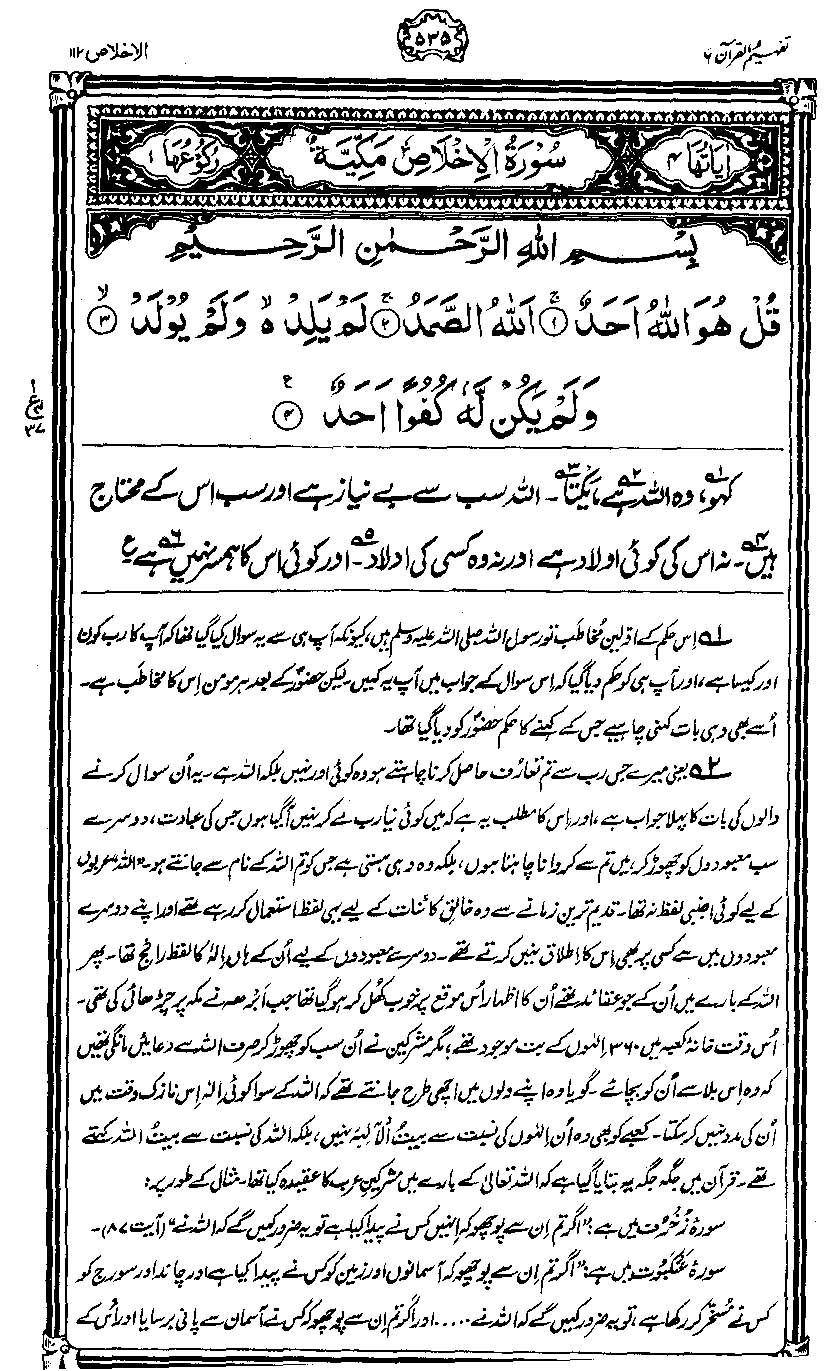 تفہیم القرآن ۶
۵۳۵
الاخلاص ۱۱۲
اٰیَاتُهَا ۴
سُوْرَةُ الْاِخْلَاصِ مَكِّیَّةٌ
رُكُوْعُهَا ۱
بِسْمِ اللّٰهِ الرَّحْمٰنِ الرَّحِیْمِ
قُلْ هُوَ اللّٰهُ اَحَدٌ ۚ﴿۱﴾ اَللّٰهُ الصَّمَدُ ۚ﴿۲﴾ لَمْ یَلِدْ ۙ۬ وَ لَمْ یُوْلَدْ ۙ﴿۳﴾
وَ لَمْ یَكُنْ لَّهٗ كُفُوًا اَحَدٌ ﴿۴﴾
ع
۳۷
کہو،۱؎ وہ اللہ ہے،۲؎ یکتا۳؎۔ اللہ سب سے بے نیاز ہے اور سب اس کے محتاج
ہیں۴؎۔ نہ اس کی کوئی اولاد ہے اور نہ وہ کسی کی اولاد۵؎۔ اور کوئی اس کا ہمسر نہیں ہے۶؎ ع
۱؎ اِس حکم کے اوّلین مُخاطَب تو رسول اللہ صلی اللہ علیہ وسلم ہیں، کیونکہ آپ ہی سے یہ سوال کیا گیا تھا کہ آپ کا رب کون
اور کیسا ہے، اور آپ ہی کو حکم دیا گیا کہ اِس سوال کے جواب میں آپ یہ کہیں۔ لیکن حضورؐ کے بعد ہر مومن اِس کا مخاطب ہے۔
اُسے بھی وہی بات کہنی چاہیے جس کے کہنے کا حکم حضورؐ کو دیا گیا تھا۔
۲؎ یعنی میرے جس رب سے تم تعارُف حاصل کرنا چاہتے ہو وہ کوئی اور نہیں بلکہ اللہ ہے۔ یہ اُن سوال کرنے
والوں کی بات کا پہلا جواب ہے، اور اِس کا مطلب یہ ہے کہ میں کوئی نیا رب لے کر نہیں آگیا ہوں جس کی عبادت، دوسرے
سب معبودوں کو چھوڑ کر، میں تم سے کروانا چاہتا ہوں، بلکہ وہ وہی ہستی ہے جس کو تم اللہ کے نام سے جانتے ہو۔ ”اللہ“ عربوں
کے لیے کوئی اجنبی لفظ نہ تھا۔ قدیم ترین زمانے سے وہ خالقِ کائنات کے لیے یہی لفظ استعمال کر رہے تھے اور اپنے دوسرے
معبودوں میں سے کسی پر بھی اِس کا اطلاق نہیں کرتے تھے۔ دوسرے معبودوں کے لیے اُن کے ہاں اِلٰہ کا لفظ رائج تھا۔ پھر
اللہ کے بارے میں اُن کے جو عقائد تھے اُن کا اظہار اُس موقع پر خوب کھُل کر ہو گیا تھا جب اَبرَھہ نے مکہ پر چڑھائی کی تھی۔
اُس وقت خانۂ کعبہ میں ۳۶۰ اِلٰہوں کے بت موجود تھے، مگر مشرکین نے اُن سب کو چھوڑ کر صرف اللہ سے دعائیں مانگی تھیں
کہ وہ اِس بلا سے اُن کو بچائے۔ گویا وہ اپنے دلوں میں اچھی طرح جانتے تھے کہ اللہ کے سوا کوئی اِلٰہ اِس نازک وقت میں
اُن کی مدد نہیں کر سکتا۔ کعبے کو بھی وہ اُن اِلٰہوں کی نسبت سے بیتُ الآلِہہ نہیں، بلکہ اللہ کی نسبت سے بیتُ اللہ کہتے
تھے۔ قرآن میں جگہ جگہ یہ بتایا گیا ہے کہ اللہ تعالیٰ کے بارے میں مشرکینِ عرب کا عقیدہ کیا تھا۔ مثال کے طور پر:
سورۂ زُخْرُف میں ہے: ”اگر تم اِن سے پوچھو کہ اِنہیں کس نے پیدا کیا ہے تو یہ ضرور کہیں گے کہ اللہ نے“ (آیت ۸۷)۔
سورۂ عَنْکَبُوت میں ہے: ”اگر تم اِن سے پوچھو کہ آسمانوں اور زمین کو کس نے پیدا کیا ہے اور چاند اور سورج کو
کس نے مُسَخَّر کر رکھا ہے، تو یہ ضرور کہیں گے کہ اللہ نے ..... اور اگر تم اِن سے پوچھو کہ کس نے آسمان سے پانی برسایا اور اُس کے